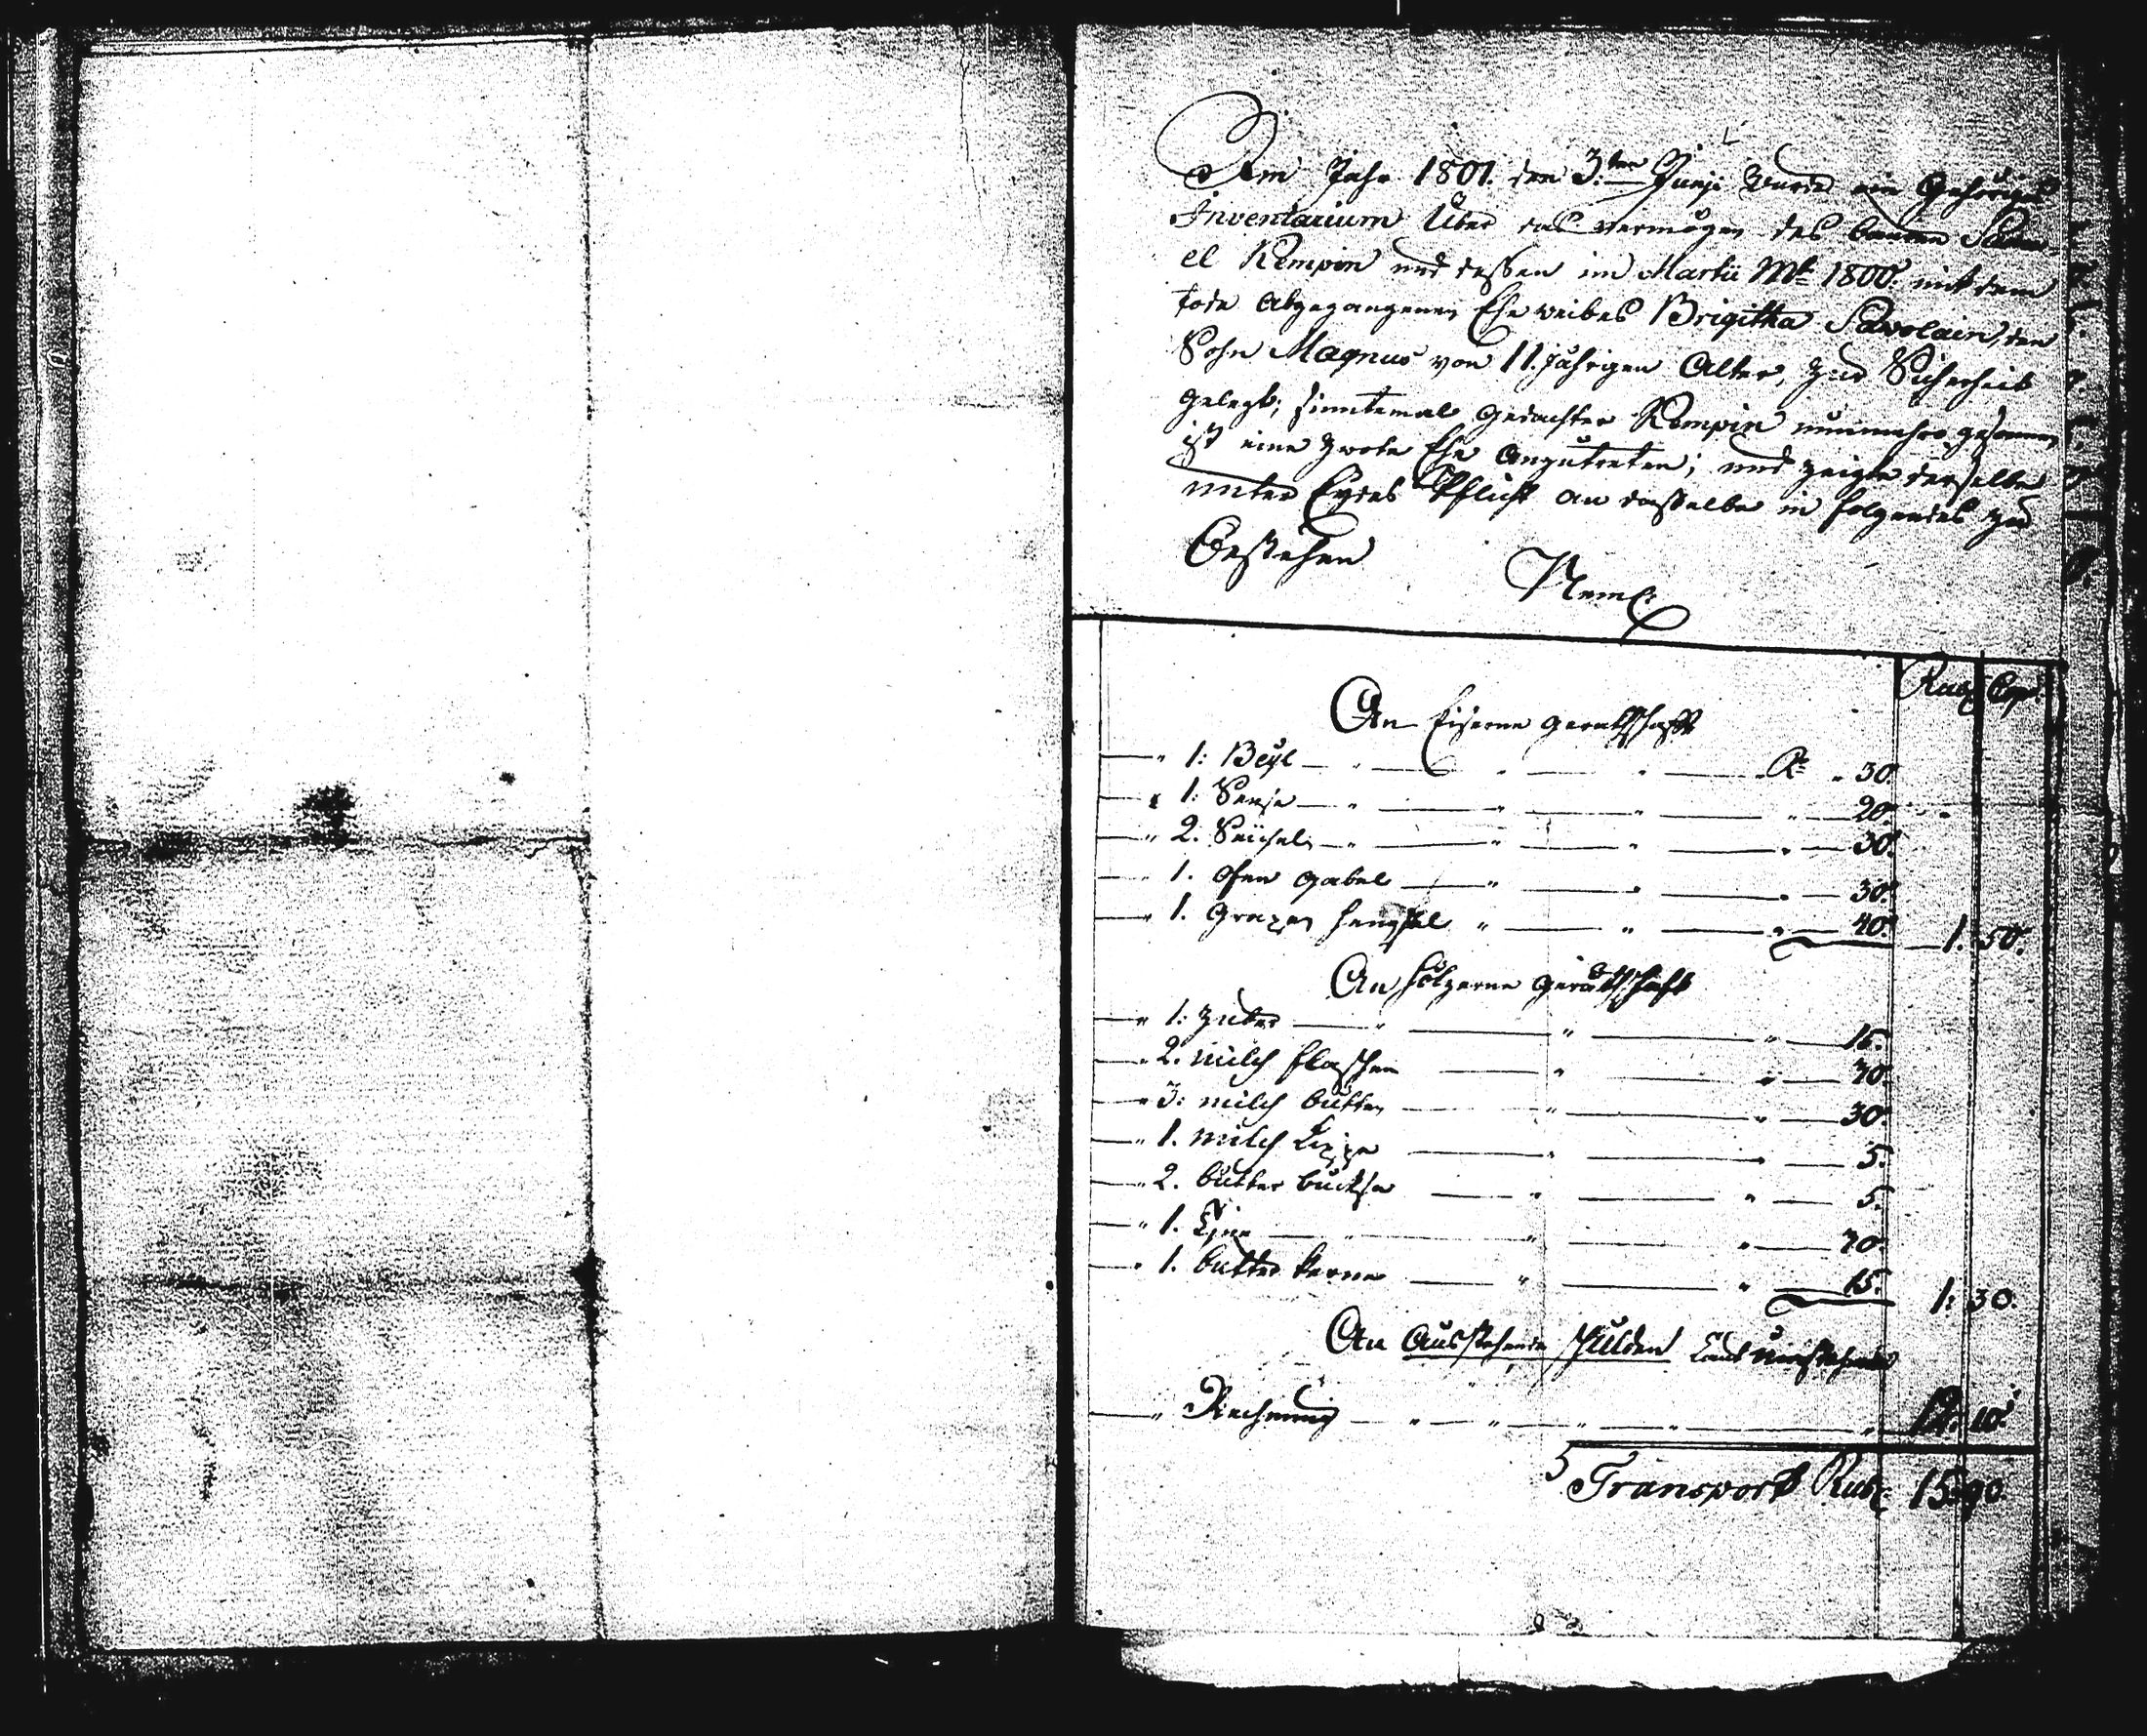 Am Jahr 1801. den 3.ten Junji wurde ein Gehöriges
Inventarium Über das vermögen des bauren Samu
el Kempin und dessen im Martii Mt 1800. mit dem
tode abgegangenen Ehe weibes Brigitha Sawolain, den
Sohn Magnus von 11. jährigen Alter, zur Sicherheit
gelegt; sinntemal gedachter Kempin nunmehro gesonnen
ist eine zwote Ehe anzutreten; und zeigte derselbe
unter Eydes Pflicht an dasselbe in folgendes zu
Bestehen
Neml:
Rub Cop.
An Eiserne geräthschafft
1: Beyl R: 30.
1: Sense 20.
2. Seichel 30.
1. ofen gabel 30.
1. Grapen 40. 1. 50.
An hölzerne geräthschaft
1: Zuber 15.
2. milch flaschen 20.
3: milch bütten 30.
1. milch 5.
2. butter buchse 5.
1. 20.
1. butter kerne 15. 1: 30.
An Ausstehende schulden Laut
Rechnung 10.
Transport Rub: 15. 90.